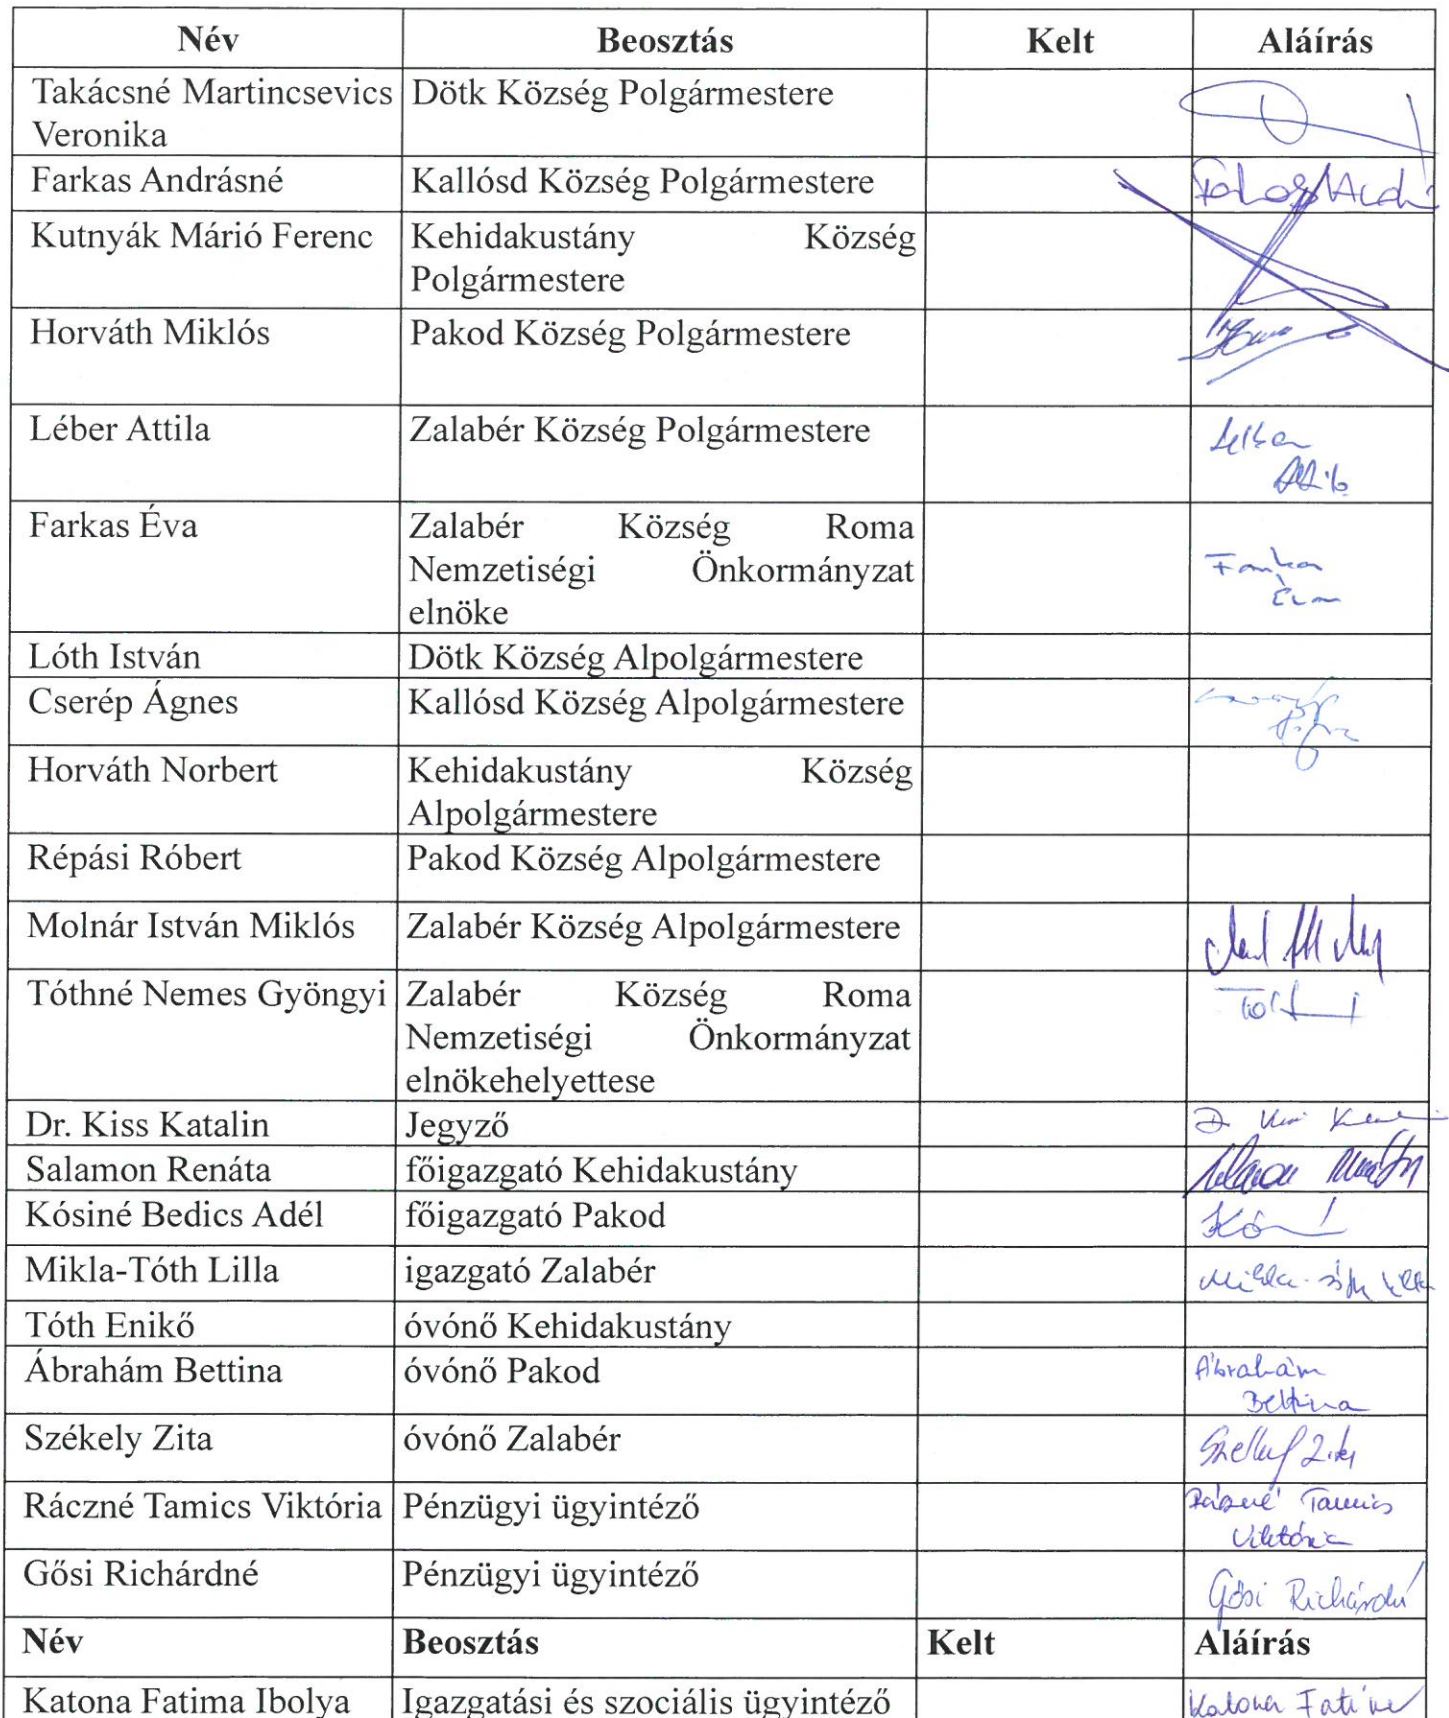 Név Beosztás Kelt Aláírás
Takácsné Martincsevics Dötk Község Polgármestere
Veronika
Farkas Andrásné Kallósd Község Polgármestere
Kutnyák Márió Ferenc Kehidakustány Község
Polgármestere
Horváth Miklós Pakod Község Polgármestere
Léber Attila Zalabér Község Polgármestere
Attila
Farkas Éva Zalabér Község Roma
Nemzetiségi Önkormányzat Farkas
elnöke Éva
Lóth István Dötk Község Alpolgármestere
Cserép Ágnes Kallósd Község Alpolgármestere
Horváth Norbert Kehidakustány Község
Alpolgármestere
Répási Róbert Pakod Község Alpolgármestere
Molnár István Miklós Zalabér Község Alpolgármestere
Tóthné Nemes Gyöngyi Zalabér Község Roma
Nemzetiségi Önkormányzat
elnökehelyettese
Dr. Kiss Katalin Jegyző Dr Kiss Katalin
Salamon Renáta főigazgató Kehidakustány
Kósiné Bedics Adél főigazgató Pakod
Mikla-Tóth Lilla igazgató Zalabér Mikla-Tóth Lilla
Tóth Enikő óvónő Kehidakustány
Ábrahám Bettina óvónő Pakod Ábrahám
Bettina
Székely Zita óvónő Zalabér Székely Zita
Ráczné Tamics Viktória Pénzügyi ügyintéző Ráczné Tamics
Viktória
Gősi Richárdné Pénzügyi ügyintéző Gősi Richárdné
Név Beosztás Kelt Aláírás
Katona Fatima Ibolya Igazgatási és szociális ügyintéző Katona Fatima